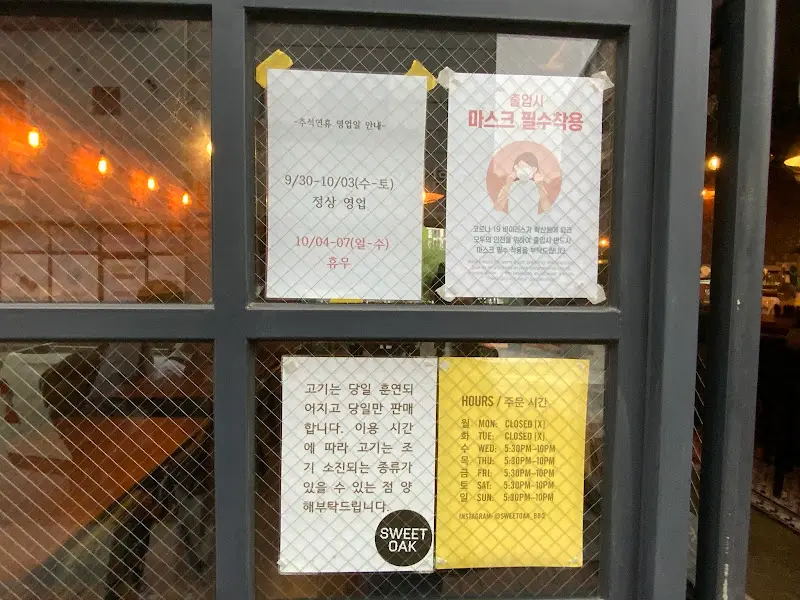 -추석연휴 영업일 안내-
9/30-10/03(수-토)
정상 영업
10/04-07(일-수)
휴무
출입시
마스크 필수착용
코로나-19 바이러스가 확산됨에 따라
모두의 안전을 위하여 출입시 반드시
마스크 필수 착용을 부탁드립니다.
고기는 당일 훈연되
어지고 당일만 판매
합니다. 이용 시간
에 따라 고기는 조
기 소진되는 종류가
있을 수 있는 점 양
해부탁드립니다.
SWEET
OAK
HOURS / 주문 시간
월 MON: CLOSED [X]
화 TUE: CLOSED [X]
수 WED: 5:30PM-10PM
목 THU: 5:30PM-10PM
금 FRI: 5:30PM-10PM
토 SAT: 5:30PM-10PM
일 SUN: 5:30PM-10PM
INSTAGRAM: @SWEETOAK_BBQ